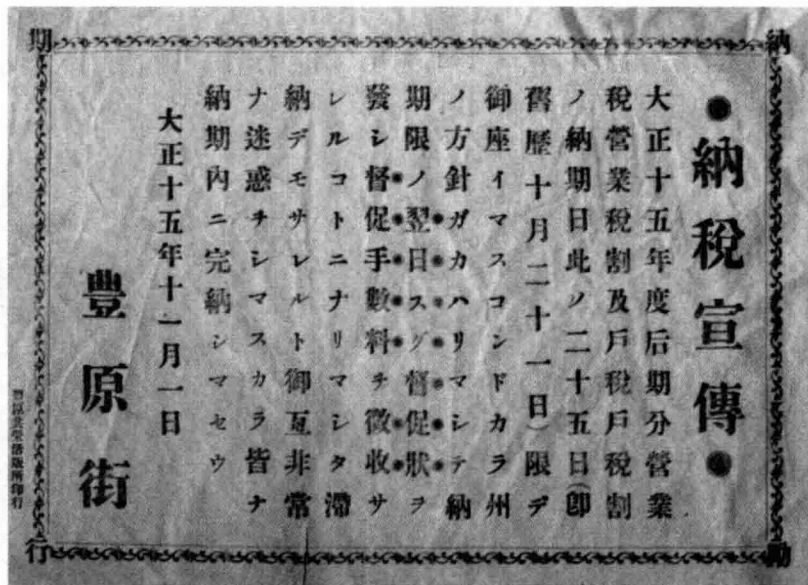 納
期
勵
行
●納稅宣傳●
大正十五年度后期分營業
稅營業稅割及戶稅戶稅割
ノ納期日此ノ二十五日(卽
舊歷十月二十一日)限デ
御座イマスコンドカラ州
ノ方針ガカハリマシテ納
期限ノ翌日スグ督促狀ヲ
發シ督促手數料チ徵收サ
レルコトニナリマシタ滯
納デモサレルト御互非常
ナ迷惑チシマスカラ皆ナ
納期內ニ完納シマセウ
大正十五年十一月一日
豐原街
豐原共榮活版所印行